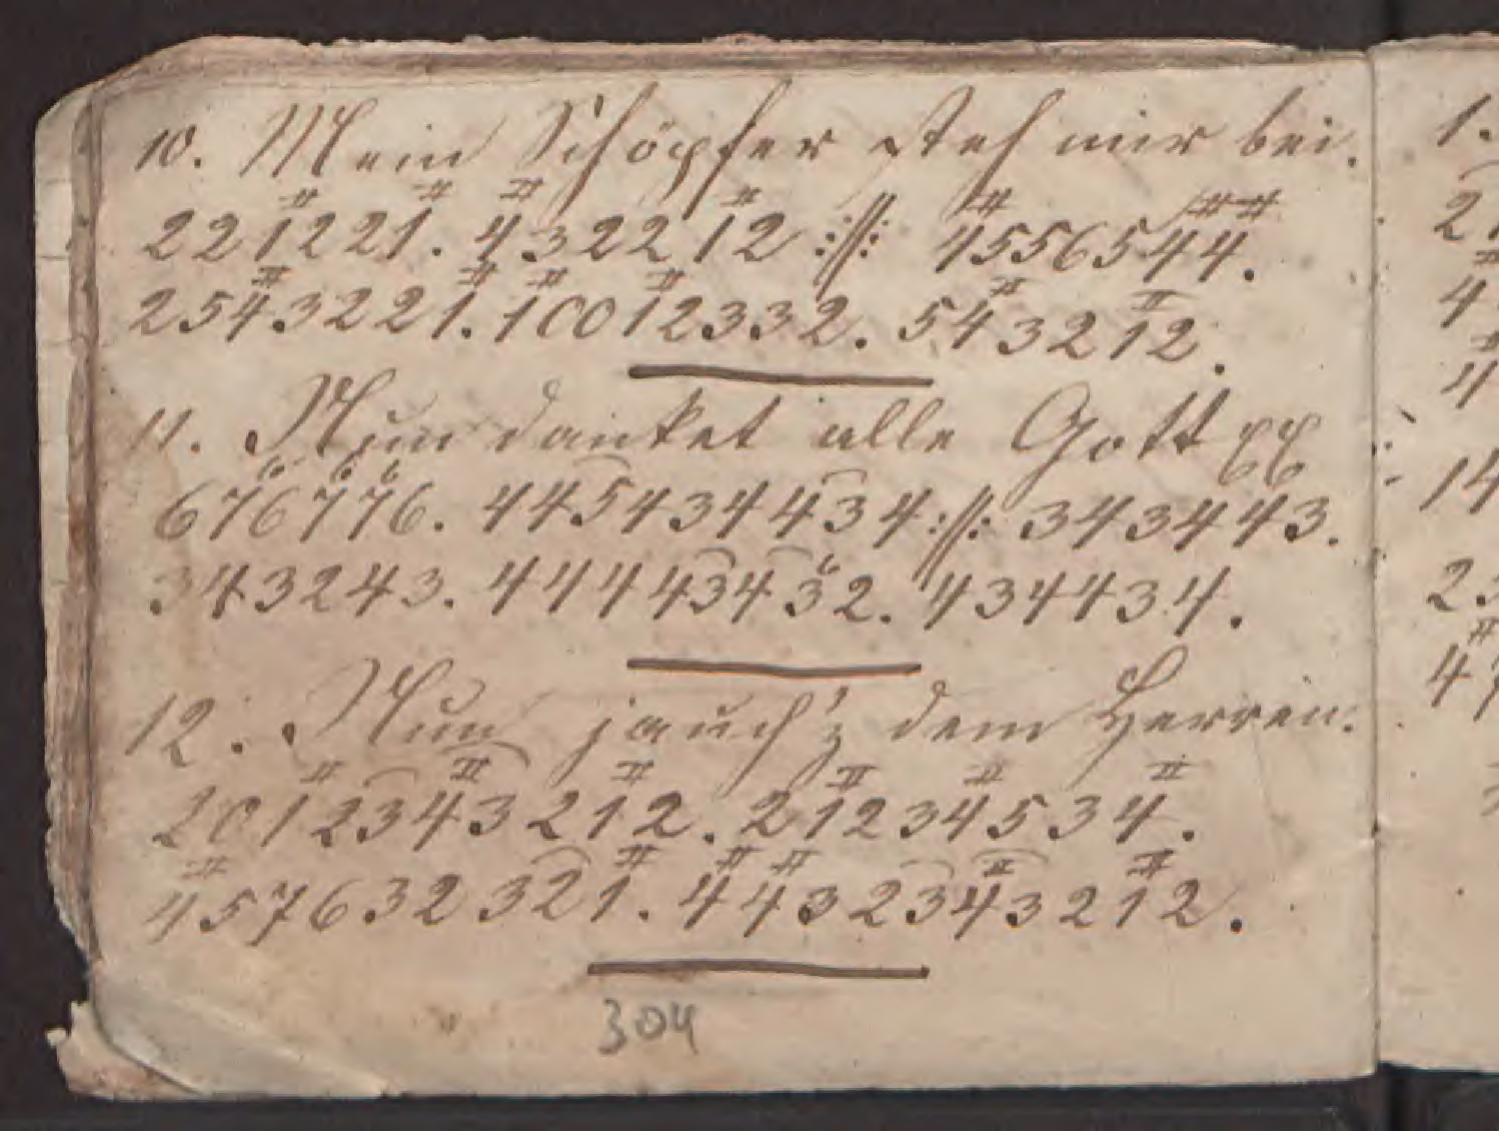 10. Mein Schöpfer steh mir bei.
221221. 4322 12 :||: 4556544.
2543221. 10012332. 543212.
11. Nun danket alle Gott
676776. 4454344 34 :||: 343443.
343243. 444434 32. 434434.
12. Nun jauch'z dem Herren.
20123432 12. 21234534.
457632 321. 44323432 12.
304
1.
2
4
4
14
2
4